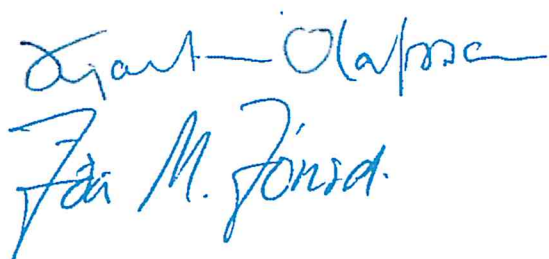 Kjartan Ólafsson
Jóa M. Jónsd.